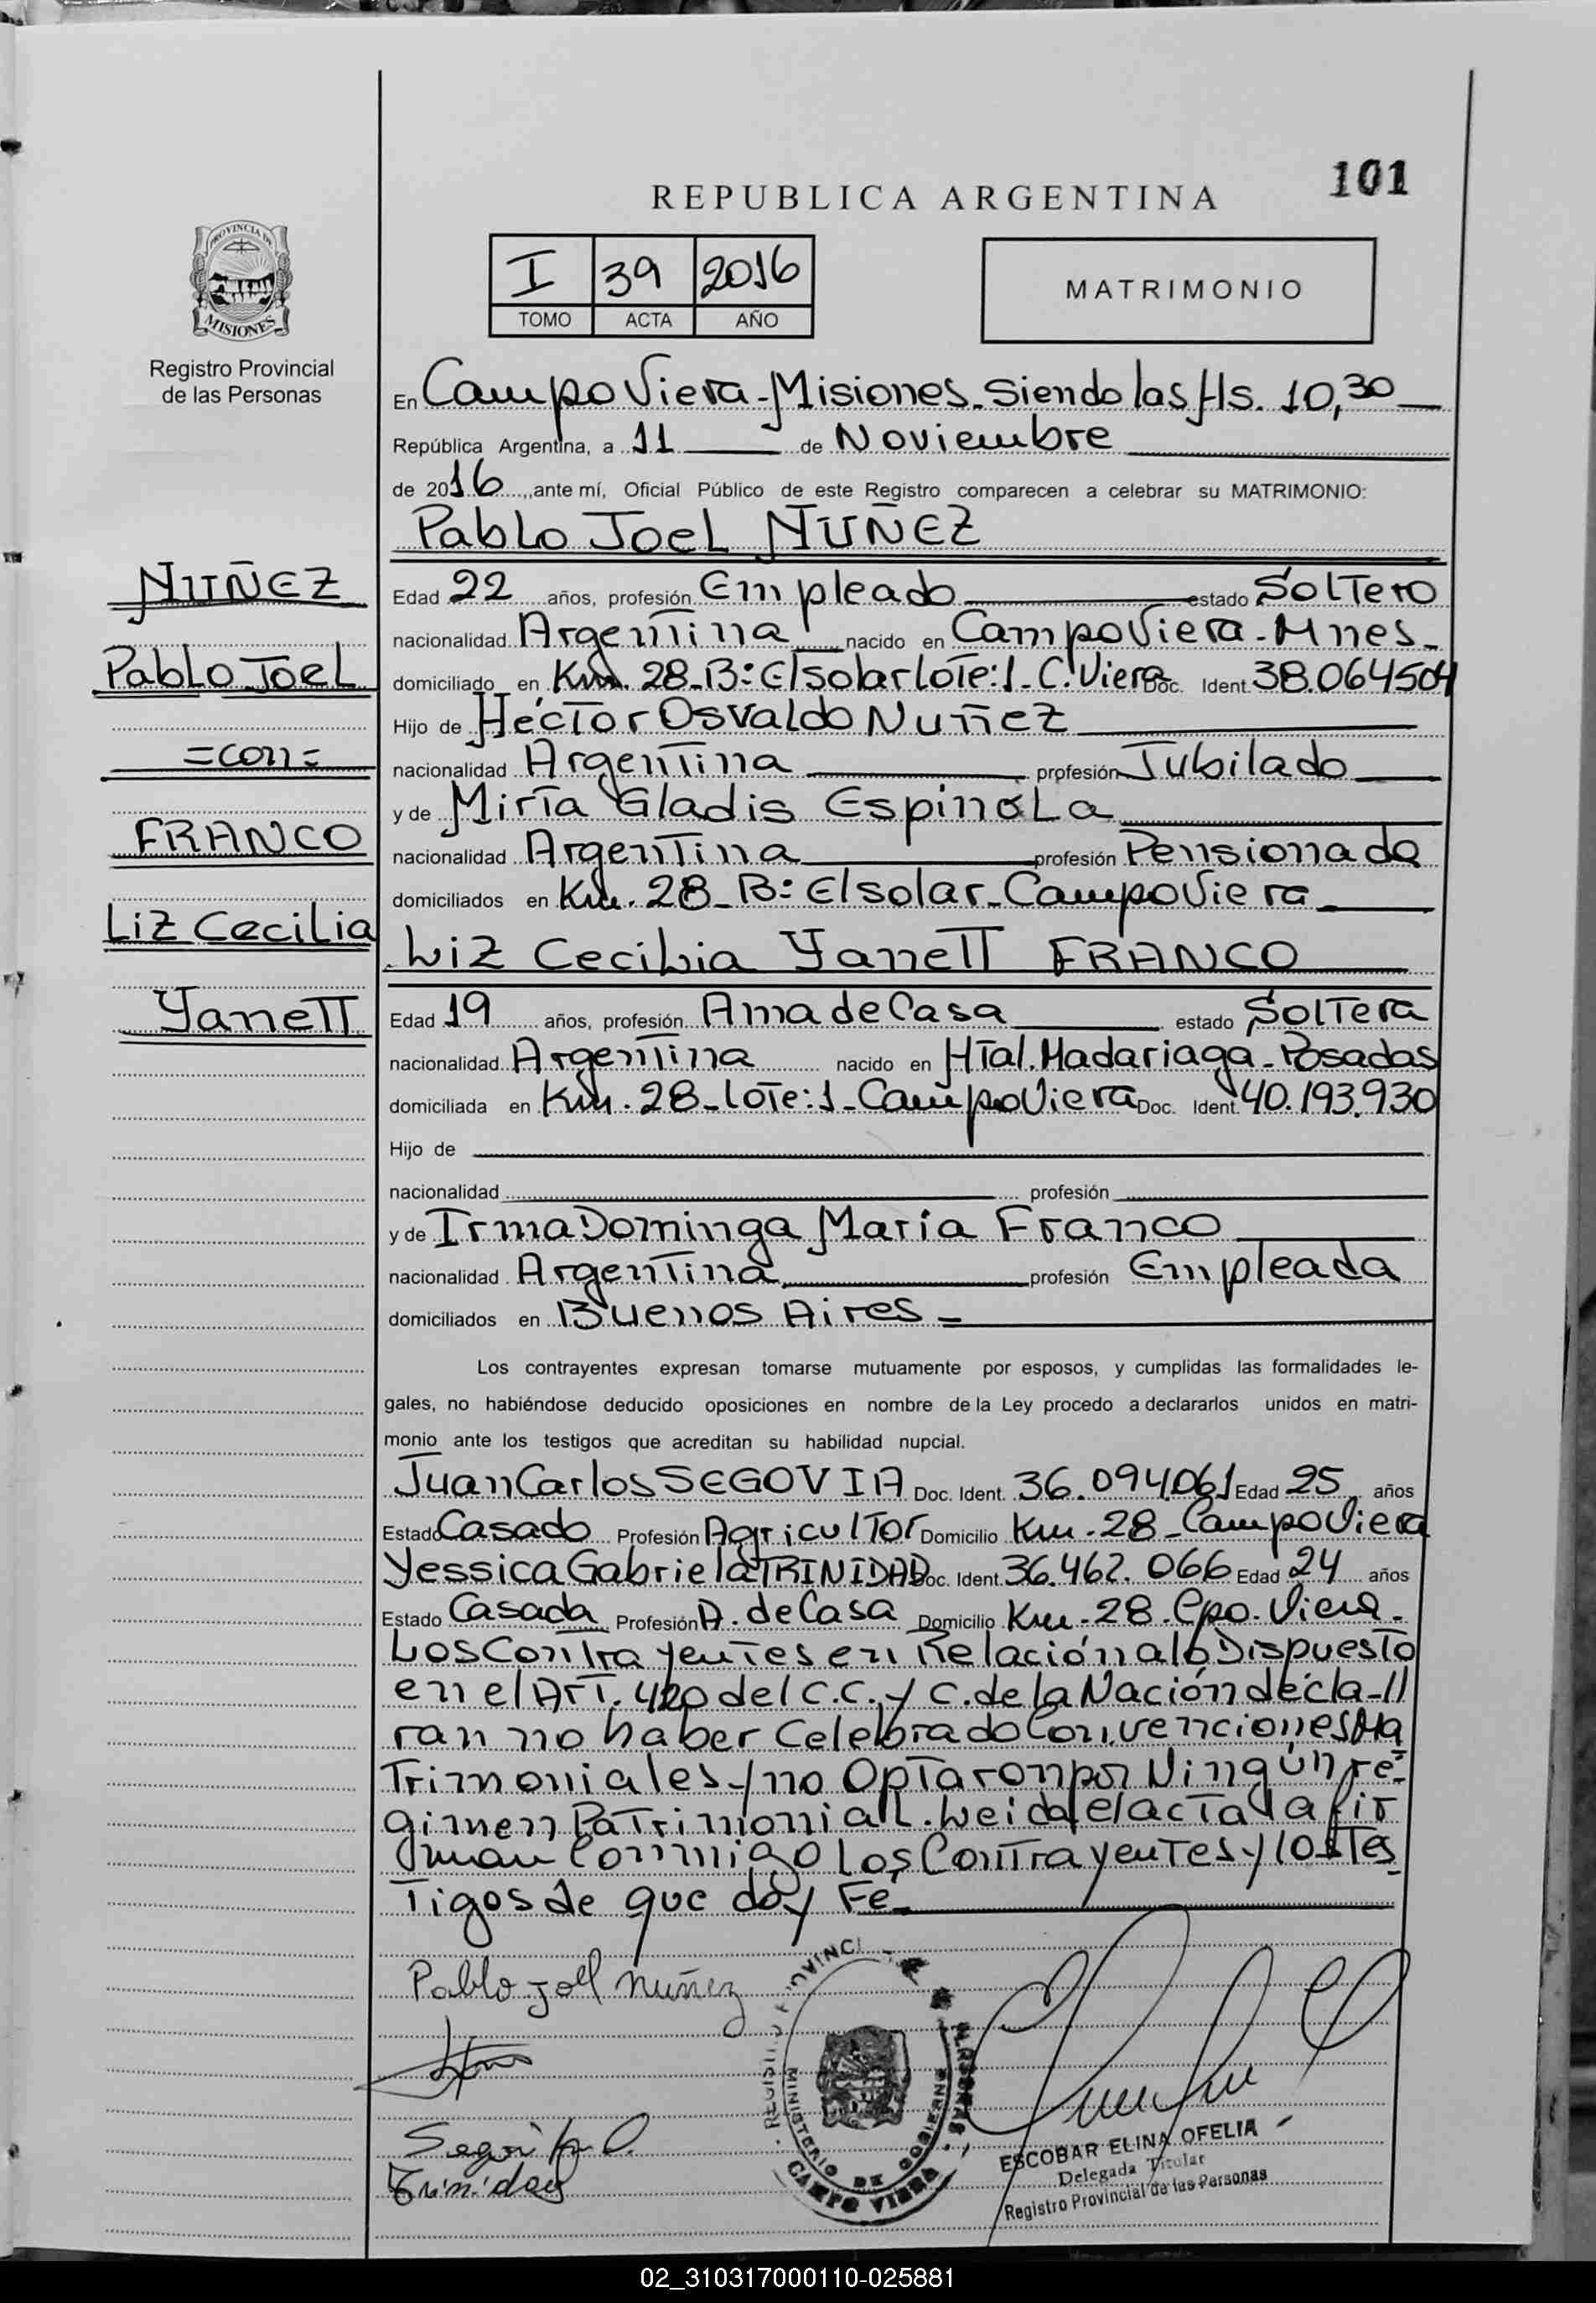 101
REPUBLICA ARGENTINA
PROVINCIA DE
MISIONES
Registro Provincial
de las Personas
I 39 2016
TOMO ACTA AÑO
MATRIMONIO
En Campo Viera - Misiones. Siendo las Hs. 10,30
República Argentina, a 11 de Noviembre
de 2016, ante mí, Oficial Público de este Registro comparecen a celebrar su MATRIMONIO:
Pablo Joel NUÑEZ
NUÑEZ
Pablo Joel
=con=
FRANCO
Liz Cecilia
Yanett
Edad 22 años, profesión Empleado estado Soltero
nacionalidad Argentina nacido en Campo Viera - Mnes -
domiciliado en Km. 28 - B: El solar lote: 1 - C. Viera Doc. Ident. 38.064504
Hijo de Héctor Osvaldo Nuñez
nacionalidad Argentina profesión Jubilado
y de Miria Gladis Espinola
nacionalidad Argentina profesión Pensionada
domiciliados en Km. 28 - B: El solar - Campo Viera
Liz Cecilia Yanett FRANCO
Edad 19 años, profesión Ama de Casa estado Soltera
nacionalidad Argentina nacido en Htal. Madariaga - Posadas
domiciliada en Km. 28 - lote: 1 - Campo Viera Doc. Ident. 40.193.930
Hijo de
nacionalidad profesión
y de Irma Dominga María Franco
nacionalidad Argentina profesión Empleada
domiciliados en Buenos Aires =
Los contrayentes expresan tomarse mutuamente por esposos, y cumplidas las formalidades le-
gales, no habiéndose deducido oposiciones en nombre de la Ley procedo a declararlos unidos en matri-
monio ante los testigos que acreditan su habilidad nupcial.
Juan Carlos SEGOVIA Doc. Ident. 36.094.061 Edad 25 años
Estado Casado Profesión Agricultor Domicilio Km. 28 - Campo Viera
Yessica Gabriela TRINIDAD Doc. Ident. 36.462.066 Edad 24 años
Estado Casada Profesión A. de Casa Domicilio Km. 28. Cpo. Viera.
Los Contrayentes en Relación a lo Dispuesto
en el Art. 420 del C.C. y C. de la Nación decla-//
ran no haber Celebrado Convenciones Ma
Trimoniales y no Optaron por Ningún ré-
gimen Patrimonial. Leida el acta la fir
man Conmigo Los Contrayentes y los Tes
Tigos de que doy Fé
Pablo Joel Nuñez
Trinidad
MINISTERIO DE GOBIERNO
CAMPO VIERA
ESCOBAR ELINA OFELIA
Delegada Titular
Registro Provincial de las Personas
02_310317000110-025881